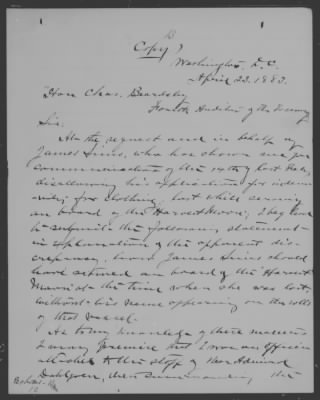 B
Copy)
Washington, D.C.
April 23. 1883.
Hon Chas. Beardsley
Fourth Auditor of the Treasury
Sir,
At the request and in behalf of
James who has shown me your
communication of the 14th of last
disallowing his application for indem-
nity for clothing lost while serving
on board of the Harvest Moon; I beg leave
to submit the following statement
in explanation of the apparent dis-
crepancy, how James should
have served on board of the "Harvest
Moon" at the time when she was lost,
without his name appearing on the rolls
of that vessel.
As to my knowledge of these matters
I may premise that I was an officer
attached to the staff of Rear Admiral
Dahlgren, then commanding the